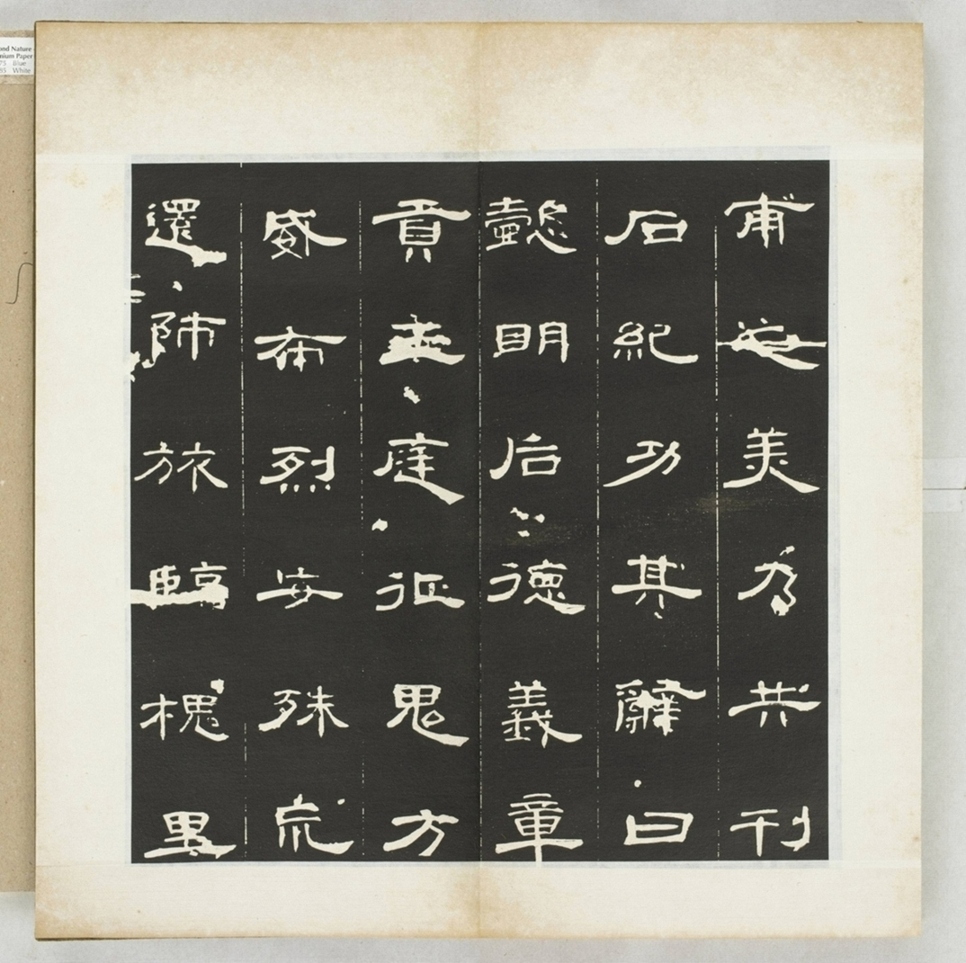 甫之美乃共刊
石紀功其辭曰
懿明后德義章
貢王庭征鬼方
威布烈安殊巟
還師旅臨槐里
Nature
Paper
Blue
White